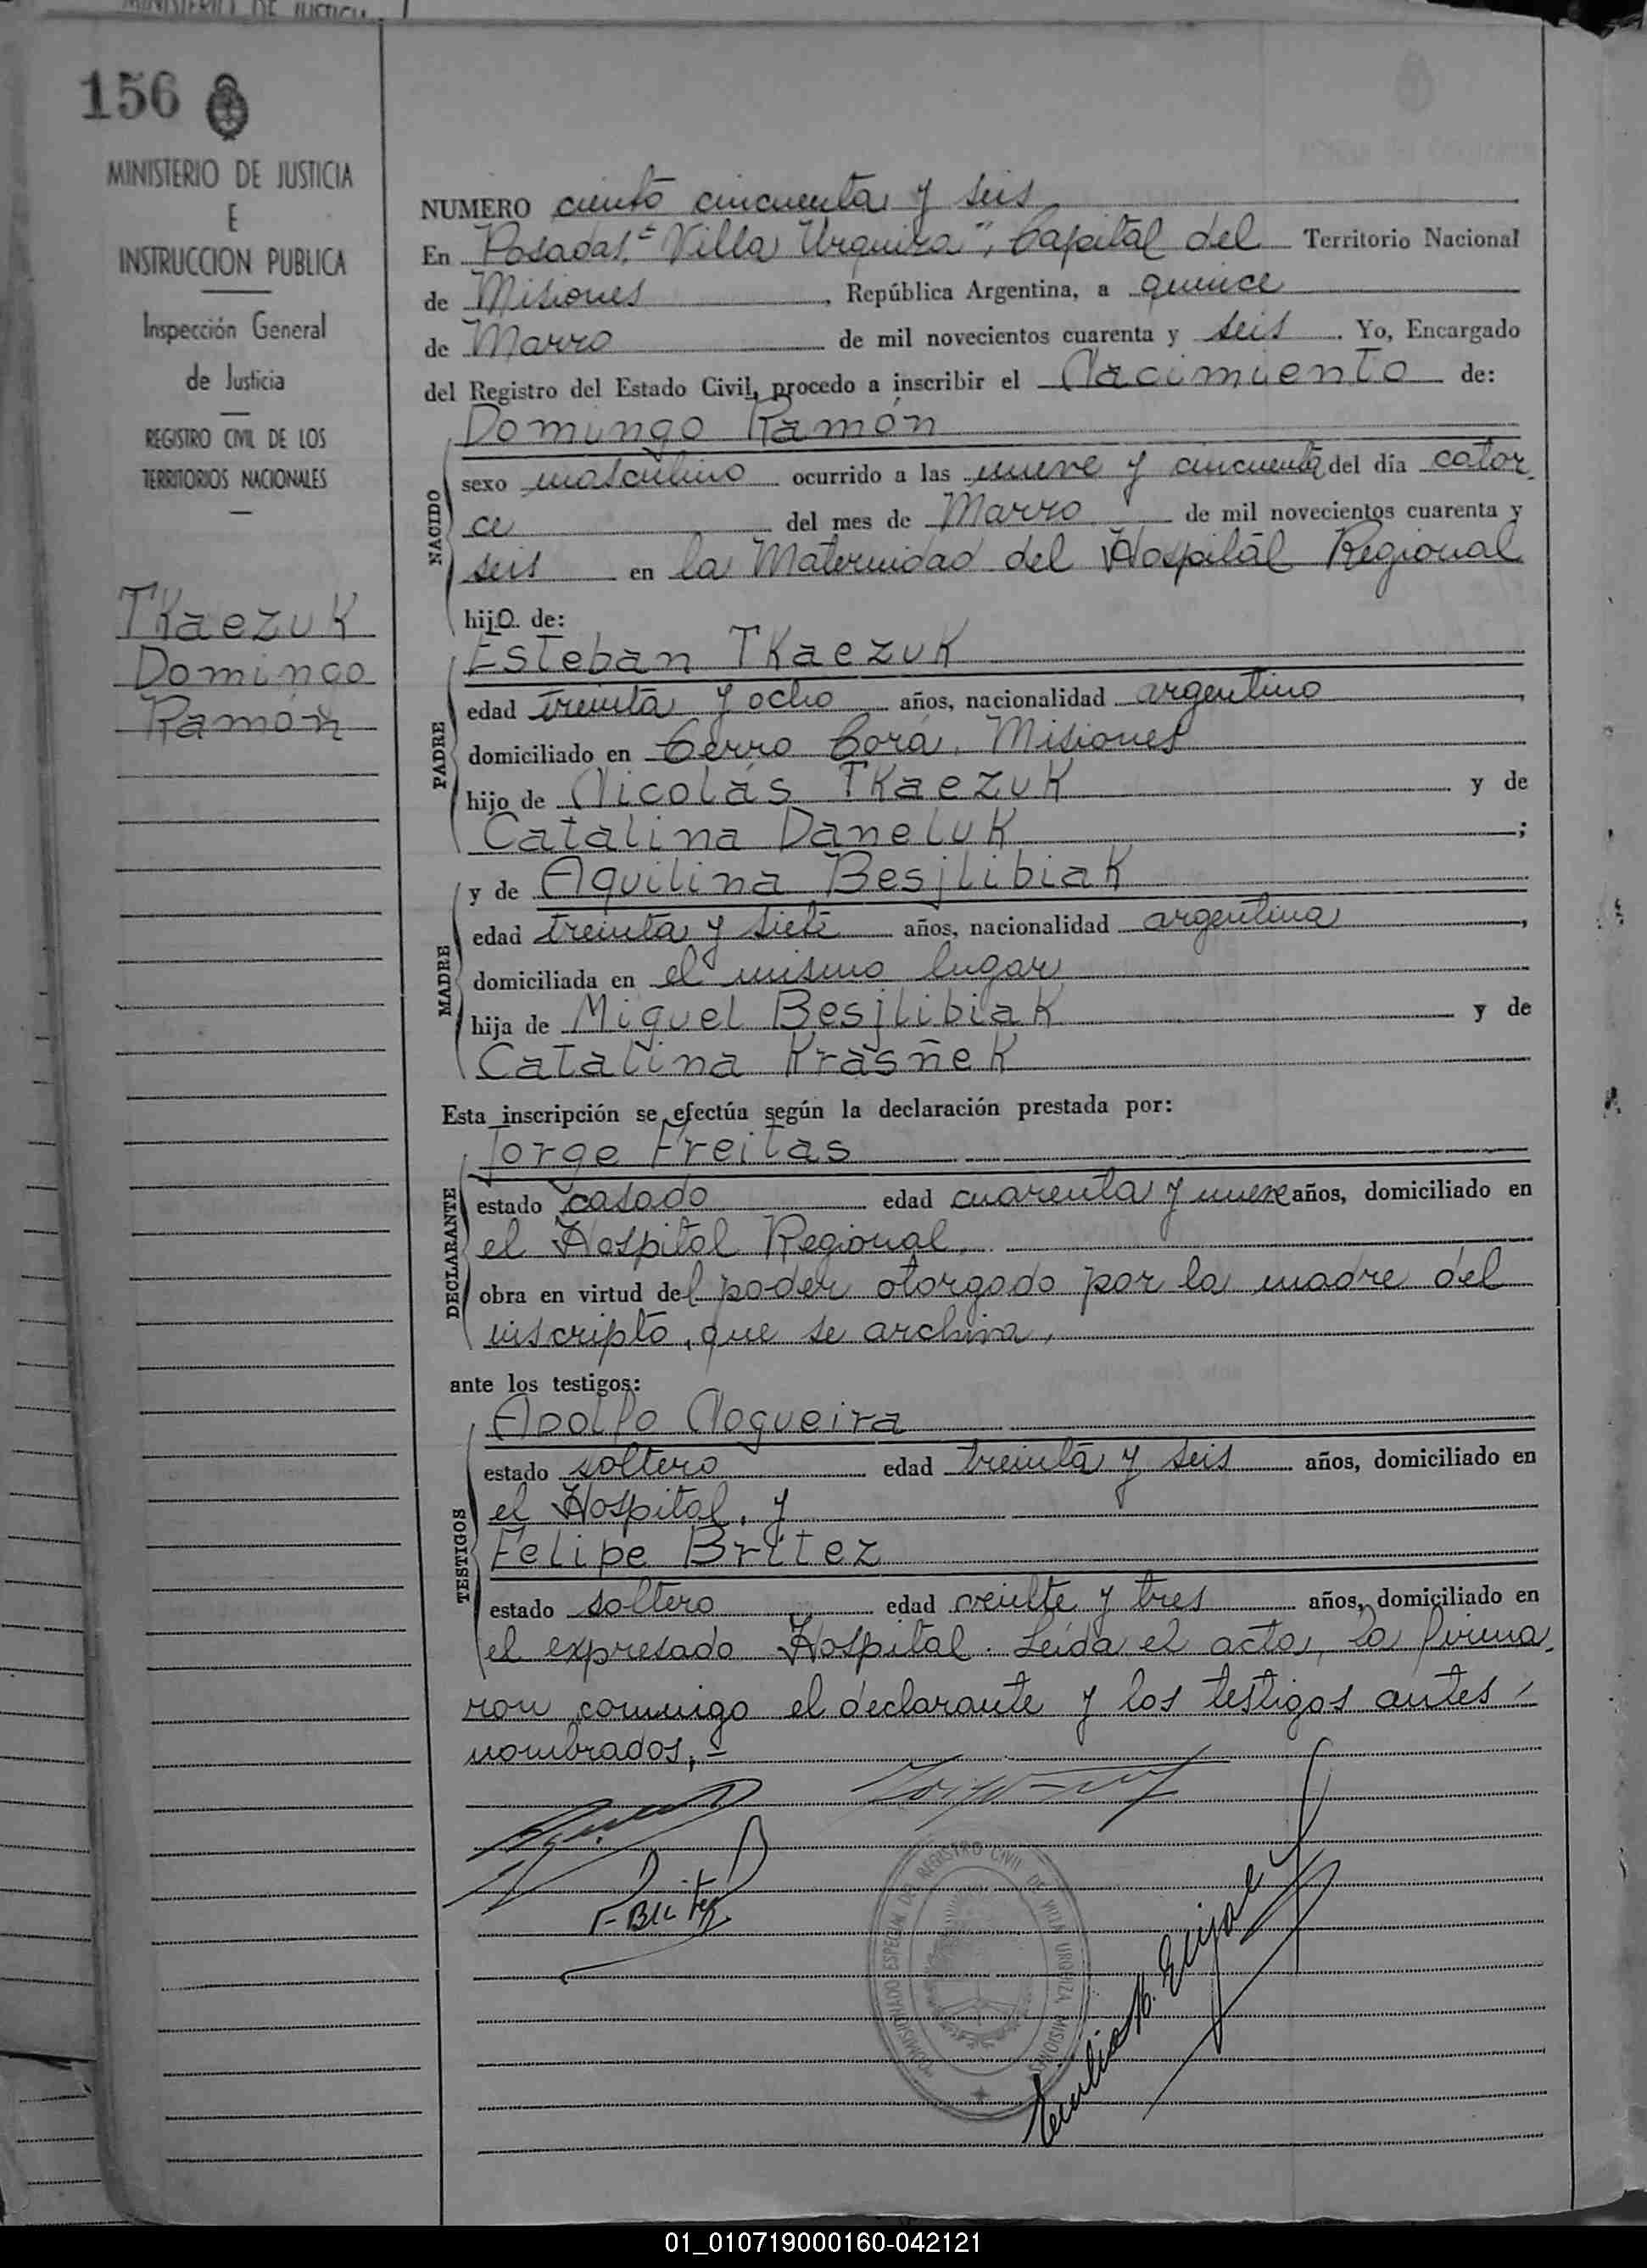 MINISTERIO DE JUSTICIA
156
MINISTERIO DE JUSTICIA
E
INSTRUCCION PUBLICA
Inspección General
de Justicia
REGISTRO CIVIL DE LOS
TERRITORIOS NACIONALES
Tkaezuk
Domingo
Ramón
NUMERO ciento cincuenta y seis
En Posadas, "Villa Urquiza", Capital del Territorio Nacional
de Misiones, República Argentina, a quince
de Marzo de mil novecientos cuarenta y seis. Yo, Encargado
del Registro del Estado Civil, procedo a inscribir el Nacimiento de:
Domingo Ramón
NACIDO
sexo masculino ocurrido a las nueve y cincuenta del día cator-
ce del mes de Marzo de mil novecientos cuarenta y
seis en la Maternidad del Hospital Regional
hijo de:
Esteban Tkaezuk
PADRE
edad treinta y ocho años, nacionalidad argentino,
domiciliado en Cerro Corá, Misiones
hijo de Nicolás Tkaezuk y de
Catalina Daneluk;
y de Aquilina Besjlibiak
MADRE
edad treinta y siete años, nacionalidad argentina,
domiciliada en el mismo lugar
hija de Miguel Besjlibiak y de
Catalina Krasñek
Esta inscripción se efectúa según la declaración prestada por:
Jorge Freitas
DECLARANTE
estado casado edad cuarenta y nueve años, domiciliado en
el Hospital Regional,
obra en virtud del poder otorgado por la madre del
inscripto, que se archiva,
ante los testigos:
Adolfo Nogueira
TESTIGOS
estado soltero edad treinta y seis años, domiciliado en
el Hospital, y
Felipe Britez
estado soltero edad veinte y tres años, domiciliado en
el expresado Hospital. Leída el acta, la firma-
ron conmigo el declarante y los testigos antes
nombrados.-
F. Britez
COMISIONADO ESPECIAL DEL REGISTRO CIVIL DE VILLA URQUIZA, MISIONES
01_010719000160-042121